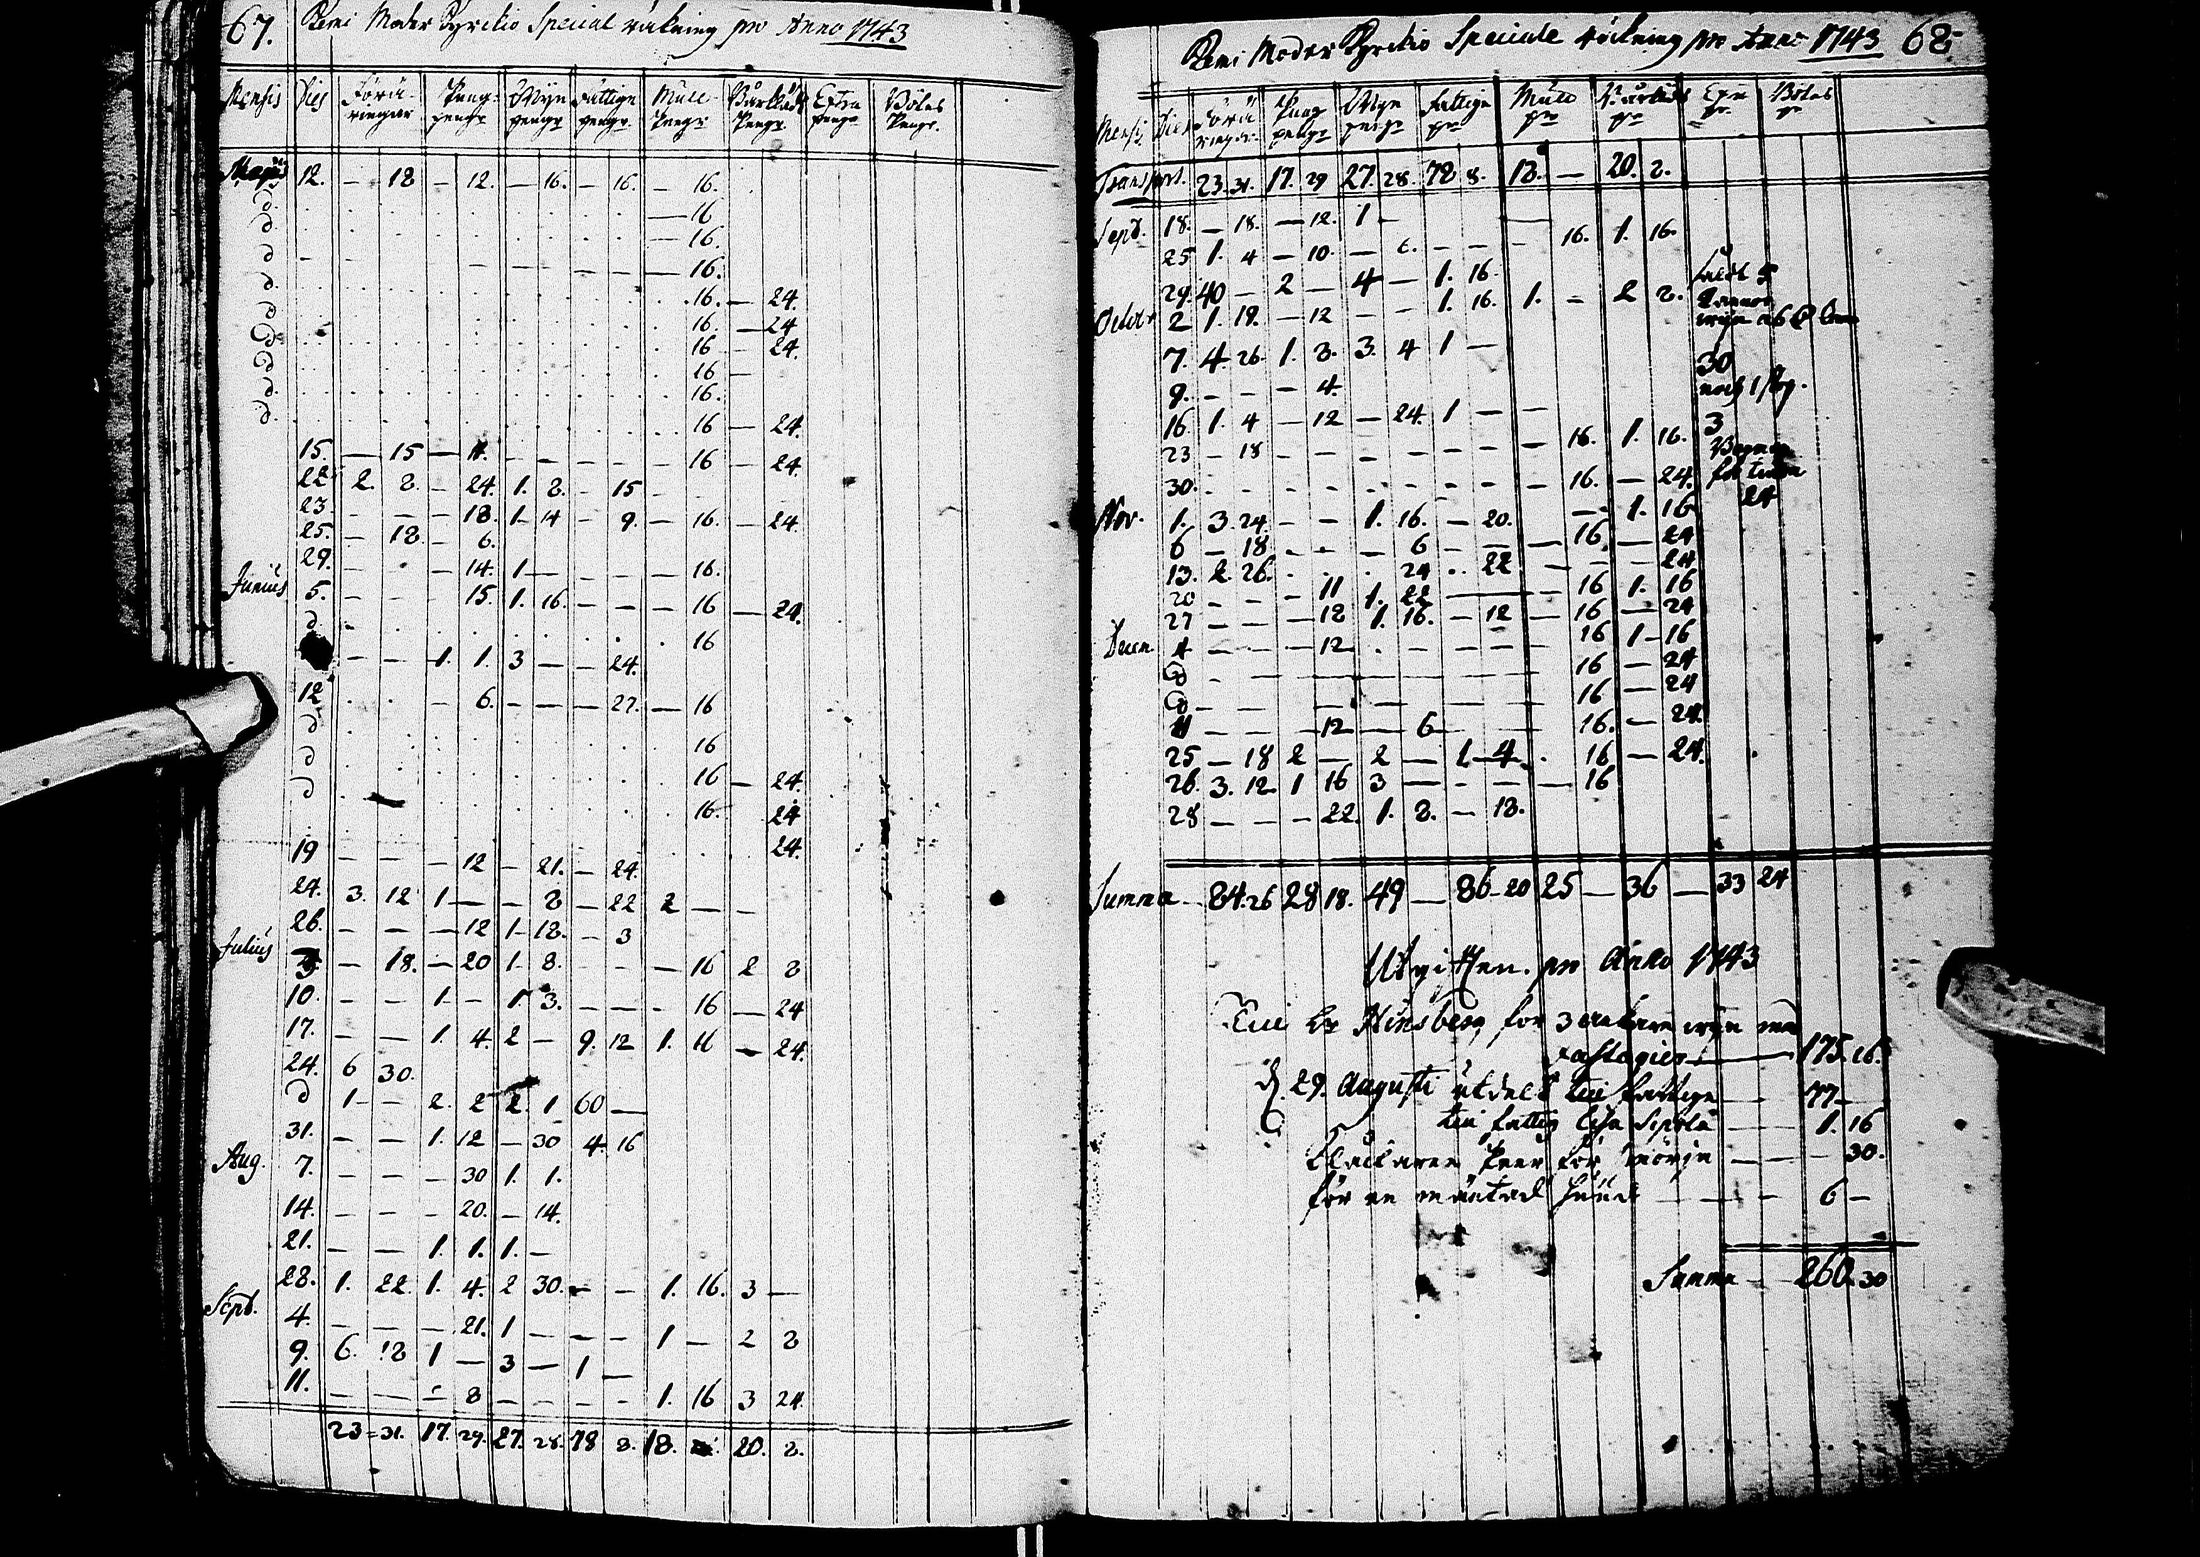 67. Kemi Moder Kyrckio Special räkning pro Anno 1743
Mensis Dies Förä- Pung- Wyn Fattige Mull- Bårkläds Extra Böles
ringar pengr pengr pengr. Pengr Pengr. pengr Pengr.
Majus 12. — 18 — 12. — 16. — 16. — 16.
d. — 16
d — 16.
d — — — — — — — — 16.
d 16. — 24.
d 16. — 24
d 16 — 24.
d 16 —
d. 16.
d. 16 — 24.
15. — 15 — 11. — — — — — 16 — 24.
22. 2. 8. — 24. 1. 8. — 15 —
23. — — — 18. 1. 14 — 9. — 16. — 24.
25. — 18. — 6.
29. — — — 14. 1 — — — — 16.
Junius 5. — — — 15. 1. 16. — — — 16 — 24.
d. 16
— — 1. 1. 3 — — 24.
12 — 6. — — — 27. — 16
d 16
d 16 — 24.
d 16. 24
24.
19 — — — 12 — 21. — 24.
24. 3. 12 1 — — 8 — 22 2 — —
26. — — — 12 1. 18. — 3
Julius 3. — 18. — 20 1. 8. — — — 16 2 8
10. — — 1. — 1. 3. — — — 16 — 24
17. — — 1. 4. 2 — 9. 12 1. 16 — 24.
24. 6 30.
d 1 — 2. 2 2. 1 60 —
31. — — 1. 12 — 30 4. 16
Aug. 7. — — — 30 1. 1.
14. — — — 20. — 14.
21. — — 1. 1. 1. —
28. 1. 22. 1. 4. 2 30. — — 1. 16. 3 —
Sept. 4. — — — 21. 1 — — — 1 — 2 8
9. 6. 18 1 — 3 — 1 —
11. — — — 8 — — — — 1. 16 3 24.
23 = 31. 17. 29. 27. 28. 78 8. 18. 20. 8.
Kemi Moder Kyrckio Speciale räckning pro Anno 1743 68
Mensis Dies Förä Pung Wyn Fattige Mull Bårkläds Extr Böles
ringar pengr pengr pr pr pr pr pr
Transport. 23. 31. 17. 29 27. 28. 78 8. 18. — 20. 8.
Sept. 18. — 18. — 12. 1 — —
25 1. 4 — 10. — 6. — — — 16. 1. 16.
29. 40 — 2 — 4 — 1. 16. såldt 5
Octobr 2 1. 19. — 12 — — 1. 16. 1. — 2 8. kannor
wyn
7. 4. 26. 1. 8. 3. 4 1 — 30
9. — — — 4. 1
16. 1. 4 — 12 — 24. 1 — — 3
23 — 18 — — — — — — — 16. 1. 16.
30. — — — — — — — — — 16. — 24. 24
Nov. 1. 3. 24. — — 1. 16. — 20. — 1. 16
6 — 18 — — — 6 — — — 16. — 24
13. 2. 26. 24 22 — — — 24
20 — — — 11 1. 22 — — — 16 1. 16
27 — — — 18 1. 16. — 12 — 16 — 24
Decem 4 — — — 12 — — — — 16 1 — 16
d — — — — — — — — 16 — 24
d — — — — — — — 16 — 24
11 — — — 12 — 6 — 16. — 24.
25 — 18 2 — 2 — 1 — 4. 16 — 24.
26. 3. 12 1 16 3 — — — — 16
28 — — — 22. 1. 8. — 18.
Summa — 84. 26 28 18. 49 — 86 — 20 25 — 36 — 33 24
Utgifften pro Anno 1743
Till Hr Hinsberg för 3 anckare wyn med
Fastagier — 175. 16.
d. 29. Augusti utdelt till fattige — 77 —
till fattig Sipola — 1. 16
Peer för — 30.
för en — 6 —
Summa — 260. 30